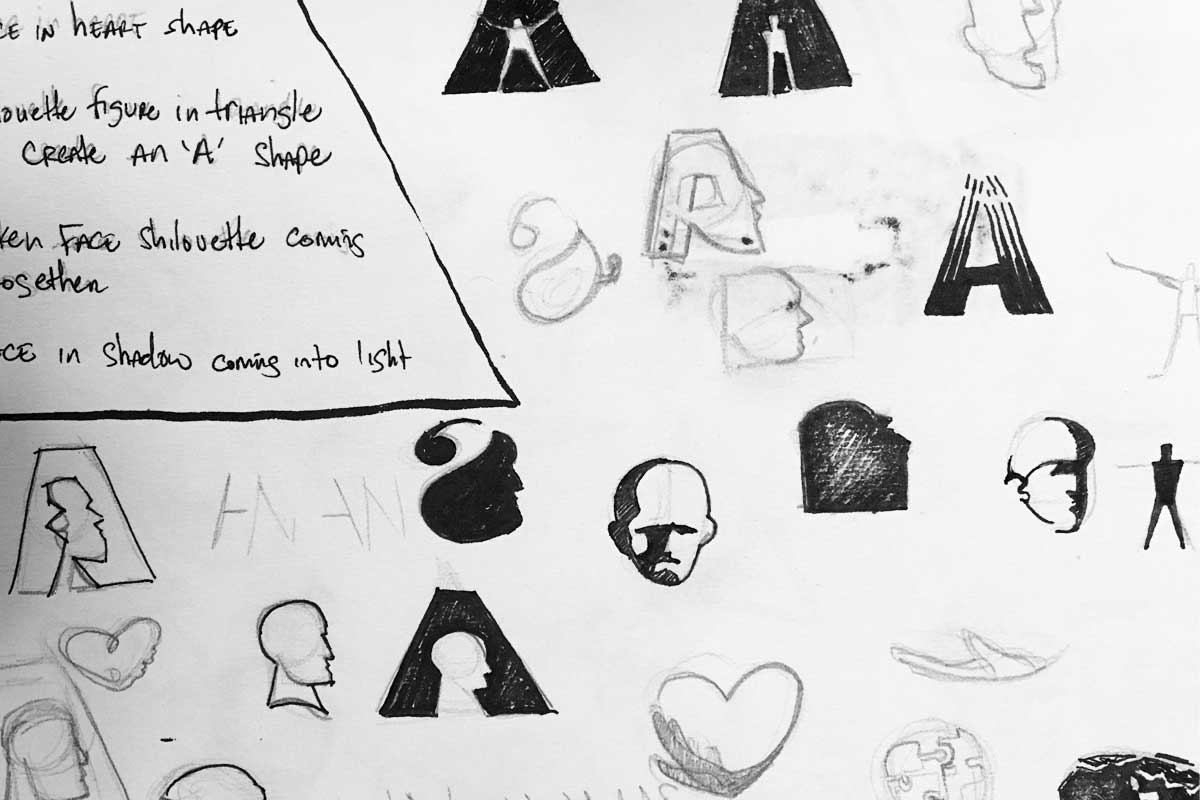 CE IN HEART SHAPE
louette figure in triangle
CREATE AN 'A' SHAPE
ken FACE shilouette coming
together
CE in SHADOW coming into light
AN AN
A